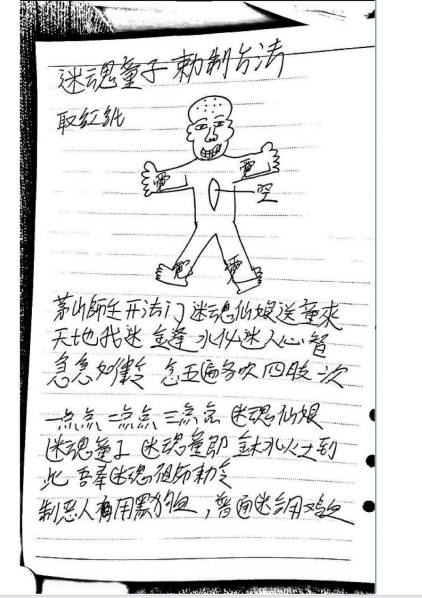 迷魂童子勅制方法
取红纸
雷 雷
空
雷 雷
茅山師主开法门迷魂仙娘送童來
天地我迷 水仙迷人心智
急急如律令 念五遍各吹四肢一次
一点点二点点三点点 迷魂仙娘
迷魂童子 迷魂童郎 到
此 吾奉迷魂祖师勅令
制恶人再用黑狗血，普通迷合用鸡血